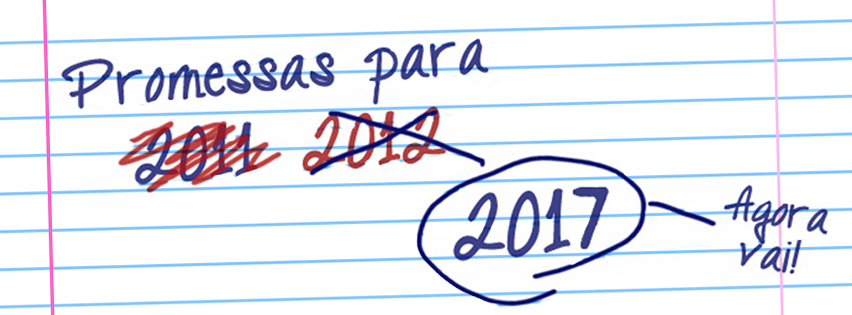 Promessas para
2011 2012
2017
Agora
vai!